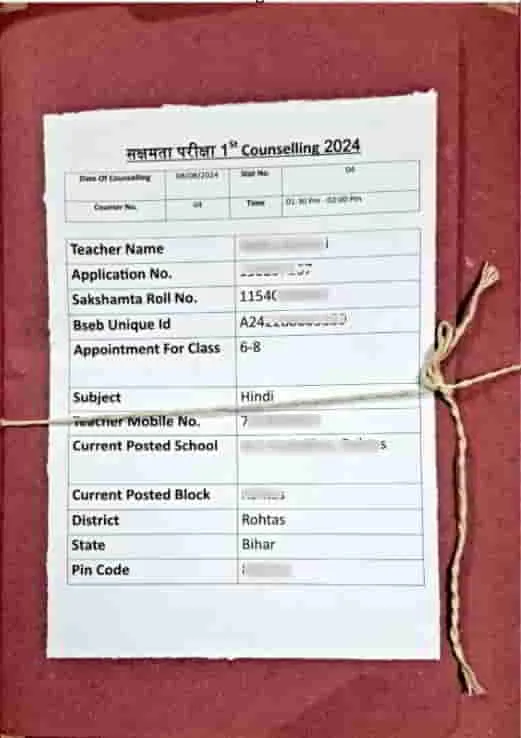 सक्षमता परीक्षा 1st Counselling 2024
Date Of Counselling 08/08/2024 Slot No. 04
Counter No. 04 Time 01:30 Pm -02:00 Pm
Teacher Name
Application No.
Sakshamta Roll No. 1154
Bseb Unique Id A24
Appointment For Class 6-8
Subject Hindi
Teacher Mobile No. 7
Current Posted School
Current Posted Block
District Rohtas
State Bihar
Pin Code